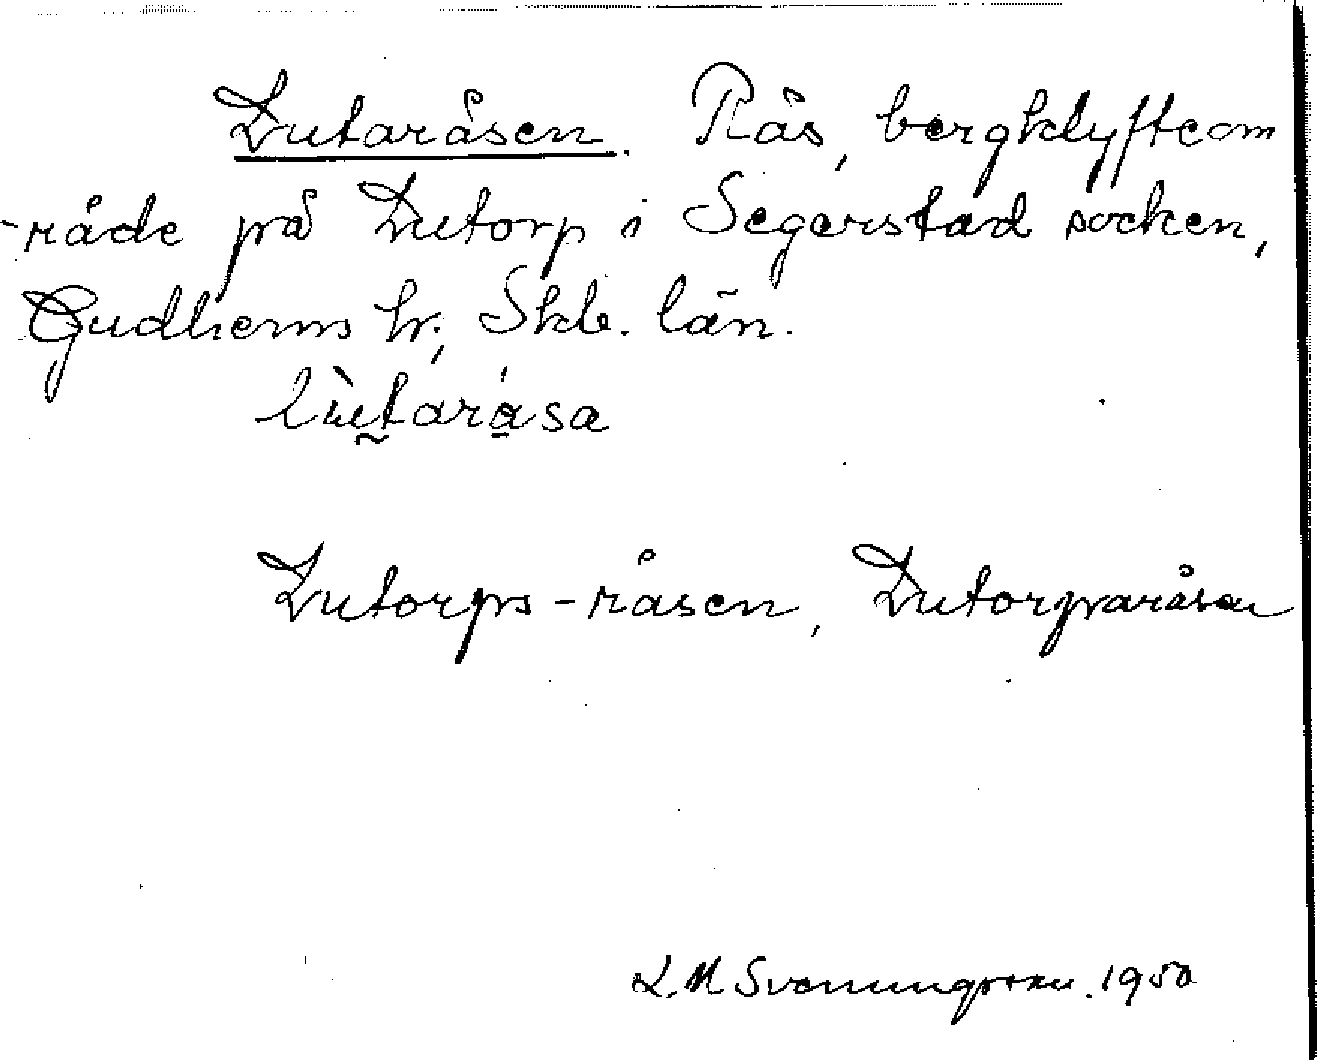 Lutaråsen. Rås, bergklyfteom
-råde på Lutorp i Segerstad socken,
Gudhems hr; Skb. län.
lùtaråsa
Lutorps-råsen, Lutorparåsen
L.M. Svenungsson. 1950